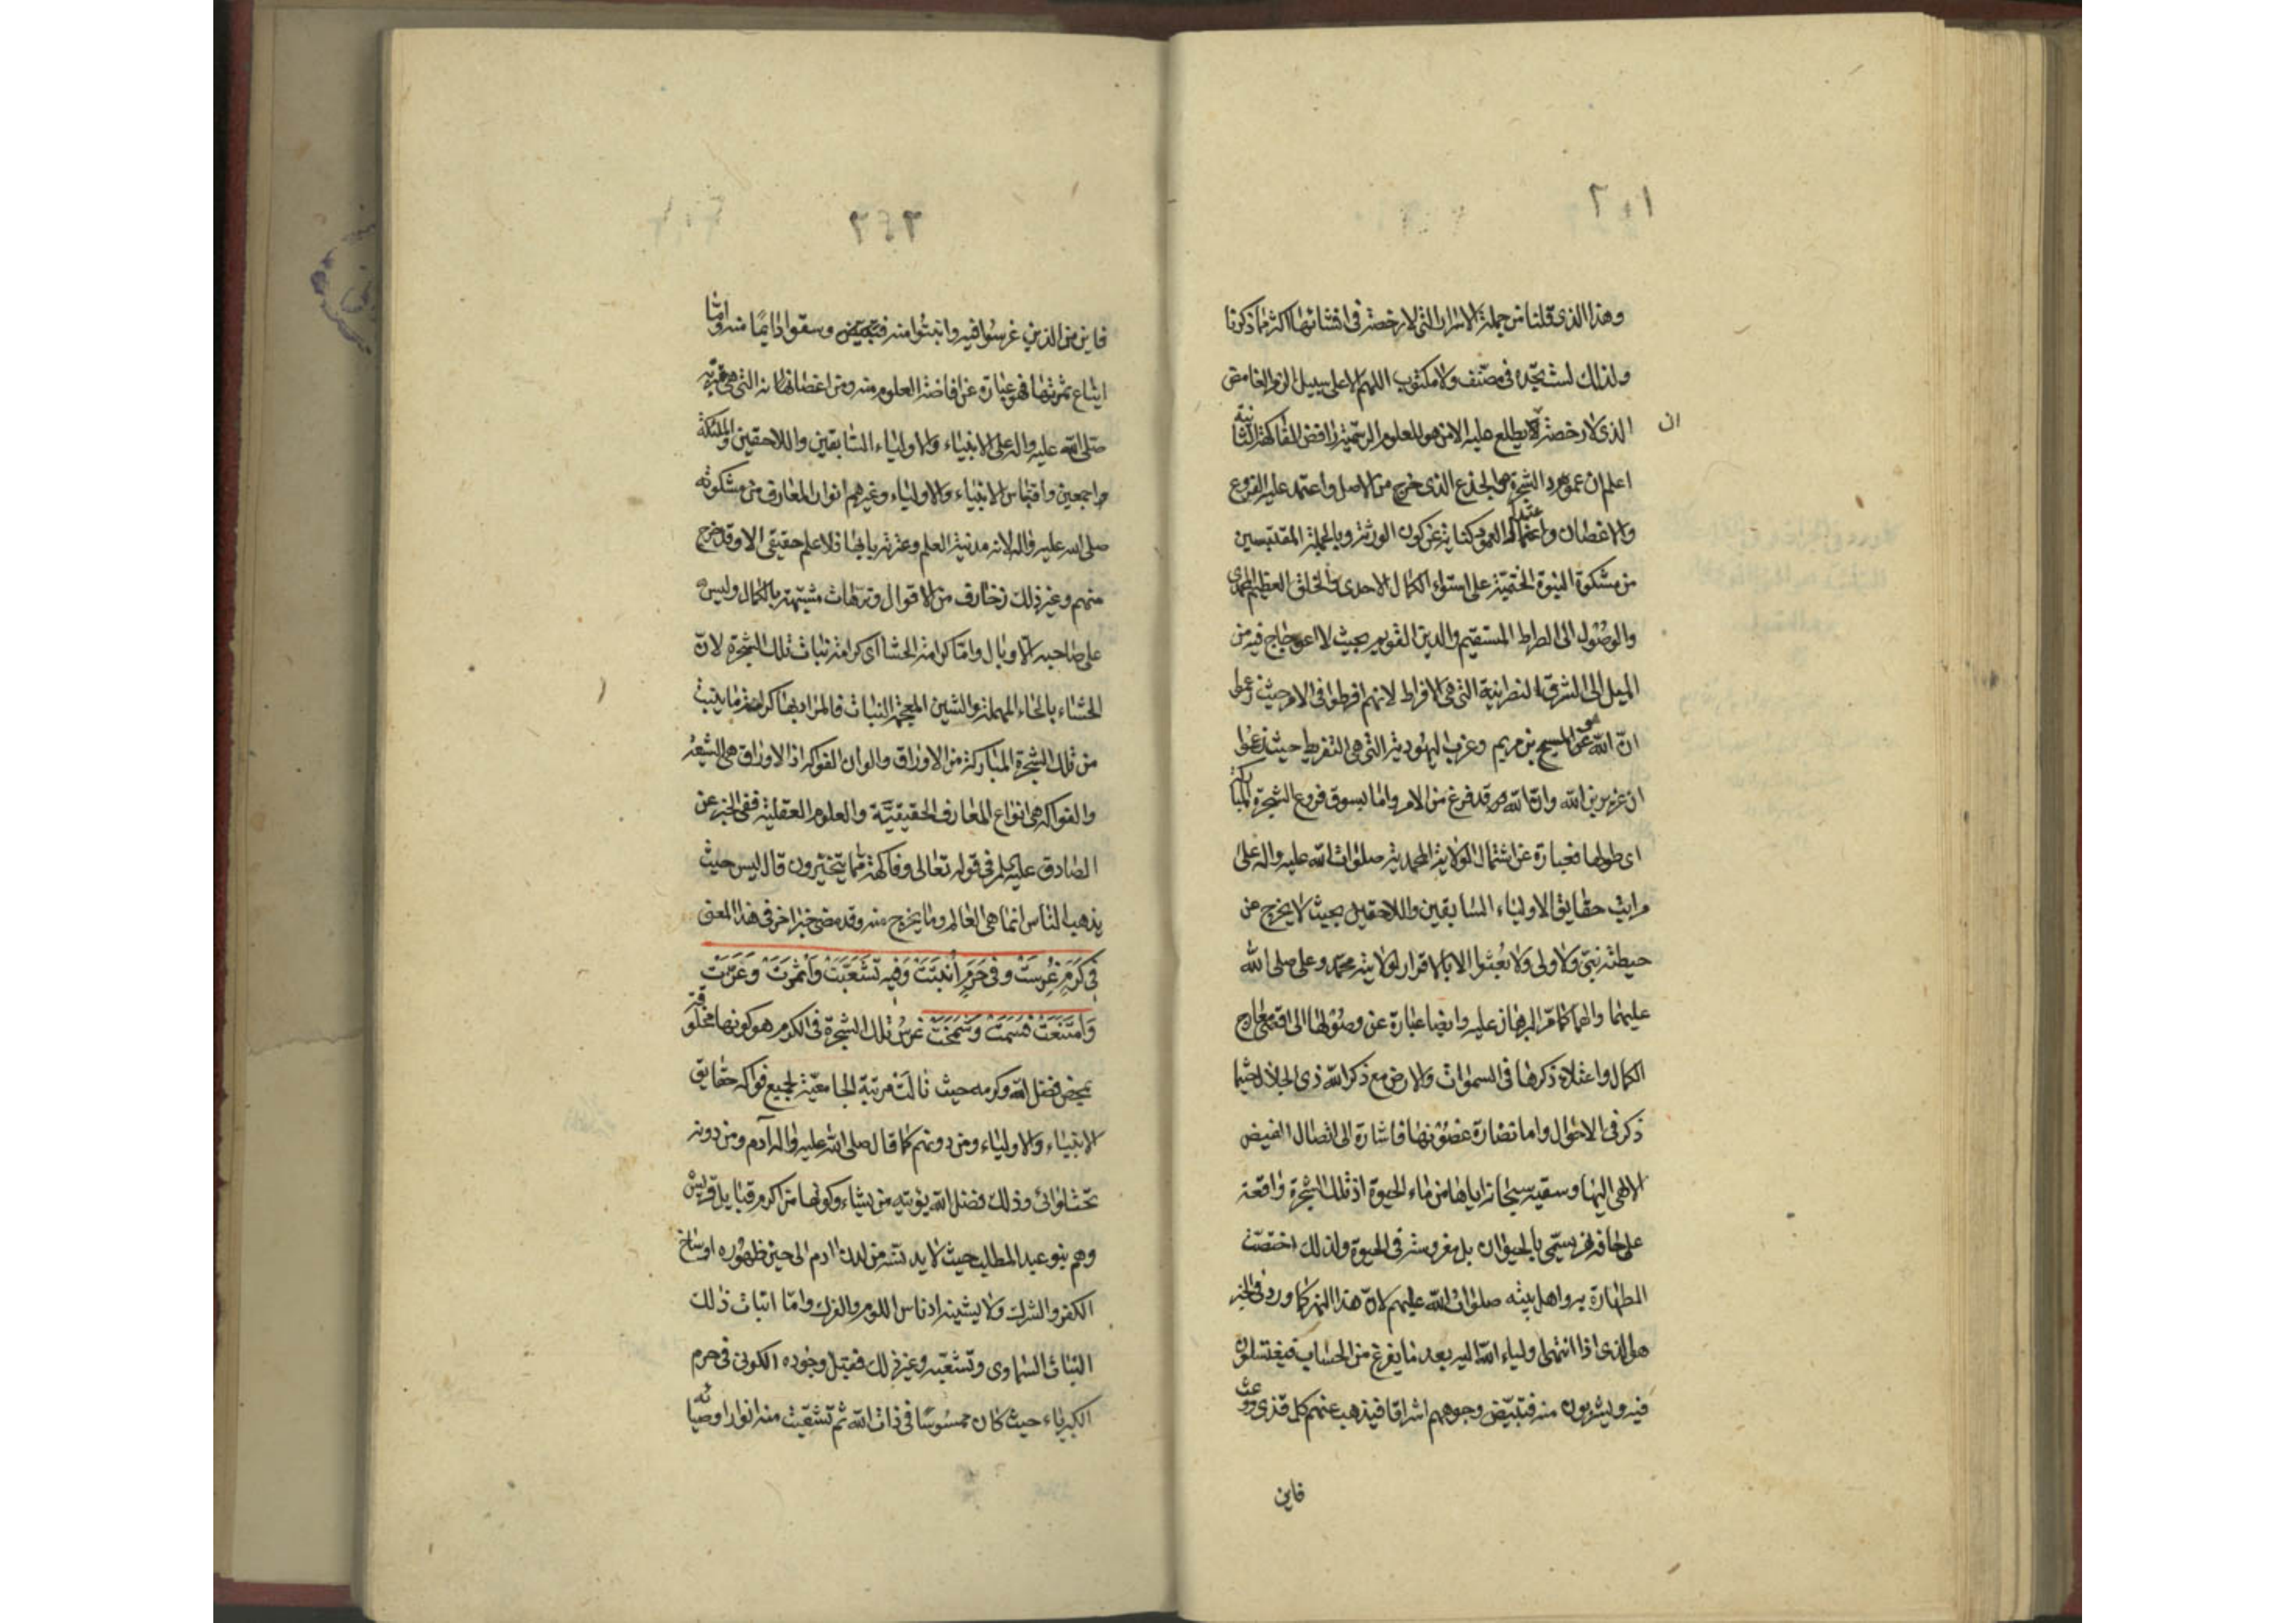 وهذا الذى قلنا من جملة الاسرار التى لا رخصة فى افشائها اكثر مما ذكرنا
ولذلك لست تجده فى مصنف ولا مكتوب اللهم الا على سبيل الرمز الغامض
الذى لا رخصة لان يطلع عليه الا من هو للعلوم الرسمية رافض الفاكهة الثانية
اعلم ان عمود الشجرة هو الجذع الذى خرج من الاصل واعتمد عليه الفروع
والاغصان واعتدال العمود كناية عن كون الورثة وبالجملة المقتبسين
من مشكوة النبوة الختمية على استواء الكمال الاحدى والخلق العظيم المحمدى
والوصول الى الصراط المستقيم والدين القويم بحيث لا اعوجاج فيه من
الميل الى الشرق النصرانية التى هى الافراط لانهم افرطوا فى الامر حيث
ان الله هو المسيح بن مريم وغرب اليهودية التى هى التفريط حيث زعموا
ان عزير بن الله وان الله قد فرغ من الامر واما بسوق فروع الشجرة المباركة
اى طولها فعبارة عن اشتمال الولاية المحمدية صلوات الله عليه واله على
مراتب حقايق الاولياء السابقين واللاحقين بحيث لا يخرج عن
حيطته نبى ولا ولى ولا بعثوا الا بالاقرار لولاية محمد وعلى صلى الله
عليهما والهما كما مر البرهان عليه وايضا عبارة عن وصولها الى اقصى معارج
الكمال واعتلاء ذكرها فى السموات والارض مع ذكر الله ذى الجلال حيثما
ذكر فى الاحوال واما نضارة غصونها فاشارة الى اتصال الفيض
الالهى اليها وسقيه سبحانه اياها من ماء الحيوة اذ تلك الشجرة واقعة
على حافة نهر يسمى بالحيوان بل مغروسة فى الحيوة ولذلك اختصت
الطهارة به واهل بيته صلوات الله عليهم لان هذا النهر كما ورد فى الخبر
هو الذى اذا انتهى اولياء الله اليه بعد ما يفرغ من الحساب فيغتسلون
فيه ويشربون منه فتبيض وجوههم اشراقا فيذهب عنهم كل قذى ووعث
فاين
فاين من الذين غرسوا فيه وانبتوا منه وسقوا دايما منه واما
ايناع ثمرتها فهو عبارة عن افاضة العلوم منه ومن اغصانها التى هى
صلى الله عليه واله على الانبياء والاولياء السابقين واللاحقين والملئكة
اجمعين واقتباس الانبياء والاولياء وغيرهم انوار المعارف من مشكوته
صلى الله عليه واله لانه مدينة العلم وعترته بابها فلا علم حقيقى الا وقد خرج
منهم وغير ذلك زخارف من الاقوال وترهات مشبهة بالكمال وليس
على صاحبه الا وبال واما كرامة الحشا اى كرامة نبات تلك الشجرة لان
الحشاء بالحاء المهملة والشين المعجمة النبات فالمراد بها كرامة ما ينبت
من تلك الشجرة المباركة من الاوراق والوان الفواكه اذ الاوراق هى الشيعة
والفواكه هى انواع المعارف الحقيقية والعلوم العقلية ففى الخبر عن
الصادق عليه السلم فى قوله تعالى وفاكهة مما يتخيرون قال ليس حيث
يذهب الناس انما هى العالم وما يخرج منه وقد مضى خبر اخر فى هذا المعنى
فِى كَرَمٍ غُرِسَتْ وَفى حَرَمٍ اُنْبِتَتْ وَفيهِ تَشَعَّبَتْ وَاَثْمَرَتْ وَعَزَّتْ
وَامْتَنَعَتْ فَسَمَتْ وَشَمَخَتْ غرس تلك الشجرة فى الكرم هو كونها مخلوقة
بمحض فضل الله وكرمه حيث نالت مرتبة الجامعية لجميع فواكه حقايق
الانبياء والاولياء ومن دونهم كما قال صلى الله عليه واله آدم ومن دونه
تحت لوائى وذلك فضل الله يؤتيه من يشاء وكونها من اكرم قبايل قريش
وهم بنو عبد المطلب حيث لا يدنسه من لدن ادم الى حين ظهوره اوساخ
الكفر والشرك ولا يشينه ادناس اللوم والفرك واما انبات ذلك
النبات السماوى وتشعبه وغير ذلك فقبل وجوده الكونى فى حرم
الكبرياء حيث كان ممسوسا فى ذات الله ثم تشعبت منه انوار اوصيائه